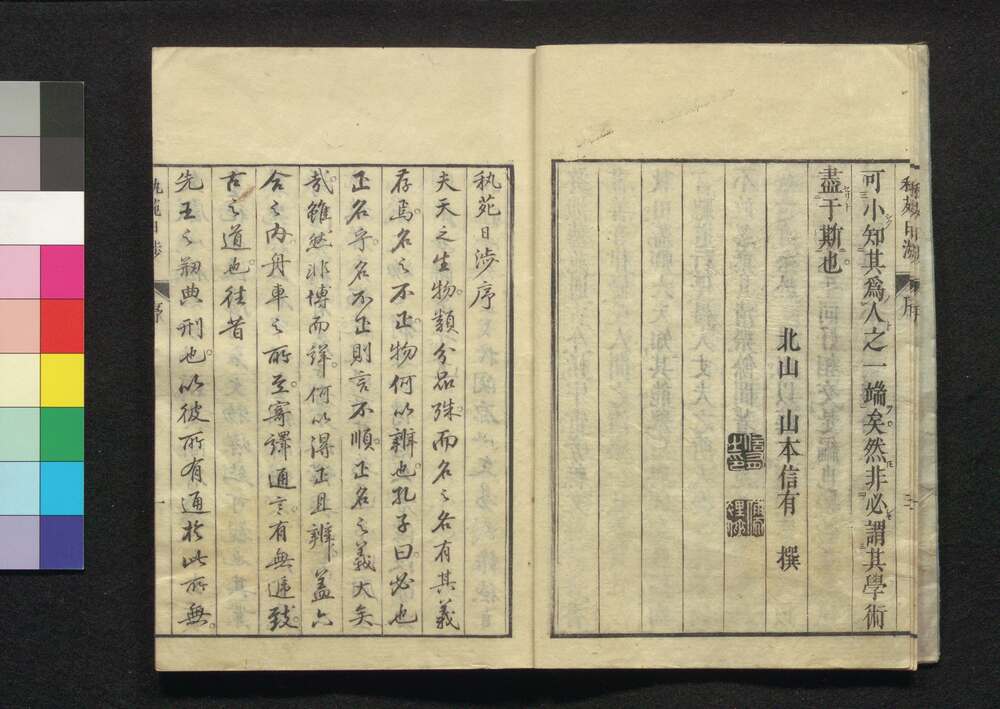 可小知其爲人之一端矣然非必謂其學術
盡于斯也
北山 山本信有 撰
秇苑日渉序
夫天之生物類分品殊而名之名有其義
存焉名之不正物何以辨也孔子曰必也
正名乎名不正則言不順正名之義大矣
哉雖然非博而詳何以得正且辨蓋六
合之内舟車之所至寄譯通言有無逓致
古之道也往昔
先王之制典刑也以彼所有通於此所無
序
一